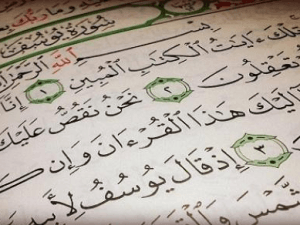 سُورَةُ يُوسُفَ
بِسْمِ اللَّهِ الرَّحْمَٰنِ
تِلْكَ ءَايَٰتُ الْكِتَٰبِ الْمُبِينِ ١ إِنَّا
تَعْقِلُونَ ٢ نَحْنُ نَقُصُّ عَلَيْكَ
إِلَيْكَ هَٰذَا الْقُرْءَانَ وَإِن
٣ إِذْ قَالَ يُوسُفُ لِأَبِيهِ